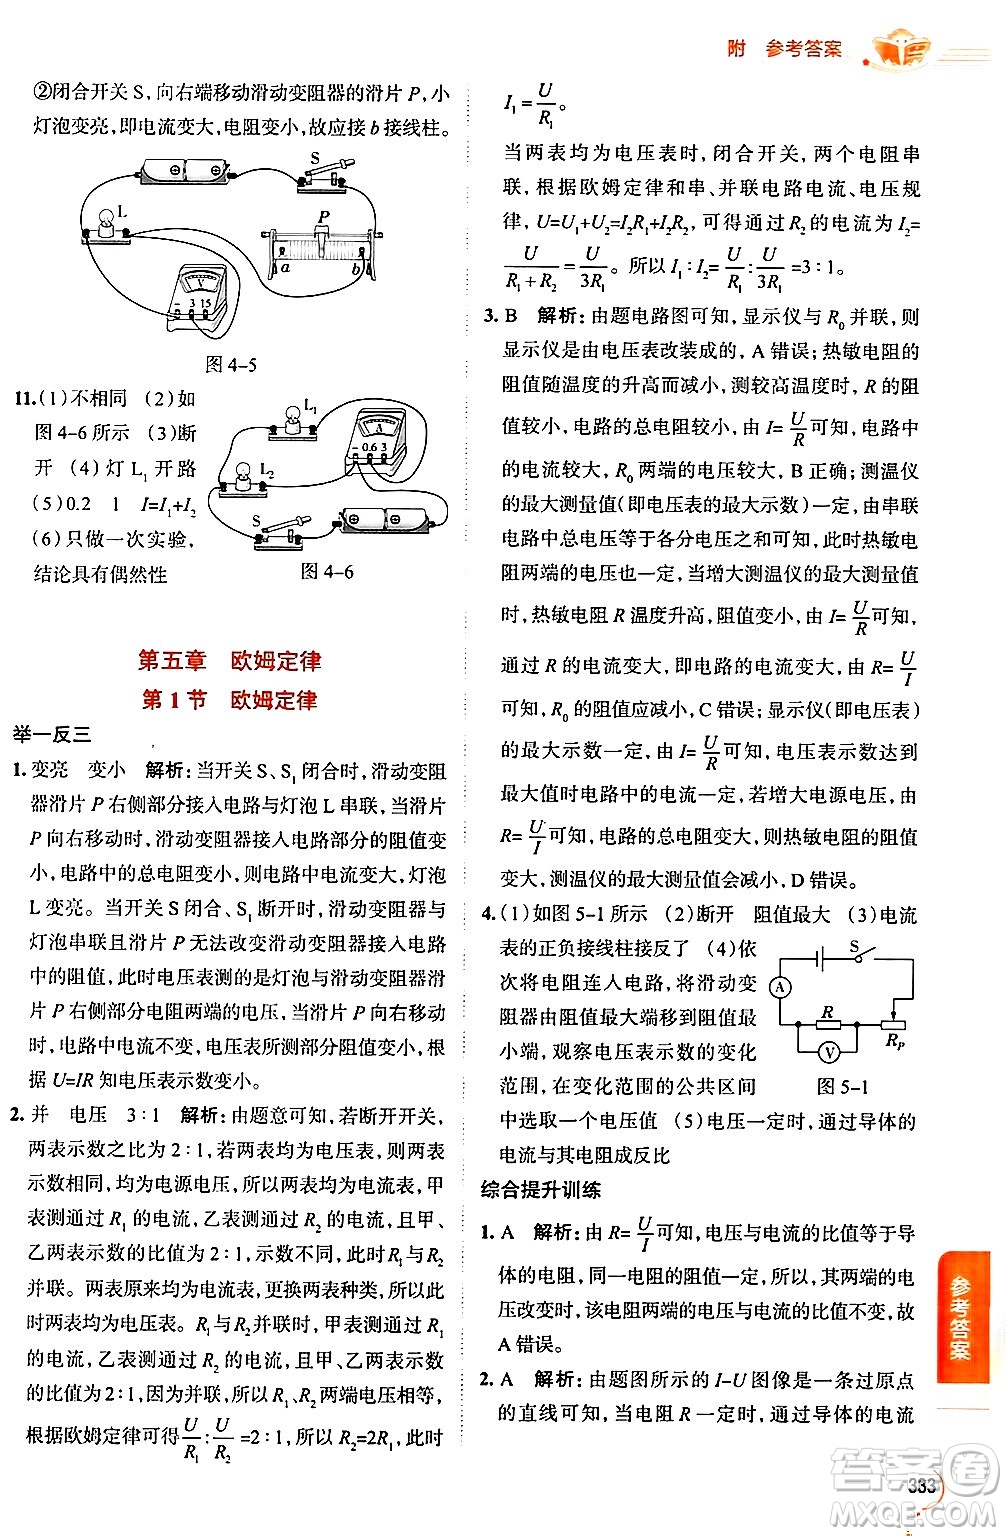 附 参考答案
②闭合开关 S，向右端移动滑动变阻器的滑片 P，小
灯泡变亮，即电流变大，电阻变小，故应接 b 接线柱。
S
L
P
a
b
V
− 3 15
图 4-5
11.(1)不相同 (2)如
图 4-6 所示 (3)断
开 (4)灯 L₁ 开路
(5)0.2 1 I=I₁+I₂
(6)只做一次实验，
结论具有偶然性
L₁
A
− 0.6 3
L₂
S
图 4-6
第五章 欧姆定律
第 1 节 欧姆定律
举一反三
1. 变亮 变小 解析：当开关 S、S₁ 闭合时，滑动变阻
器滑片 P 右侧部分接入电路与灯泡 L 串联，当滑片
P 向右移动时，滑动变阻器接入电路部分的阻值变
小，电路中的总电阻变小，则电路中电流变大，灯泡
L 变亮。当开关 S 闭合、S₁ 断开时，滑动变阻器与
灯泡串联且滑片 P 无法改变滑动变阻器接入电路
中的阻值，此时电压表测的是灯泡与滑动变阻器滑
片 P 右侧部分电阻两端的电压，当滑片 P 向右移动
时，电路中电流不变，电压表所测部分阻值变小，根
据 U=IR 知电压表示数变小。
2. 并 电压 3∶1 解析：由题意可知，若断开开关，
两表示数之比为 2∶1，若两表均为电压表，则两表
示数相同，均为电源电压，所以两表均为电流表，甲
表测通过 R₁ 的电流，乙表测通过 R₂ 的电流，且甲、
乙两表示数的比值为 2∶1，示数不同，此时 R₁、R₂
并联。两表原来均为电流表，更换两表种类，所以此
时两表均为电压表。R₁、R₂ 并联时，甲表测通过 R₁
的电流，乙表测通过 R₂ 的电流，且甲、乙两表示数
的比值为 2∶1，因为并联，所以 R₁、R₂ 两端电压相等，
根据欧姆定律可得 U/R₁∶U/R₂=2∶1，所以 R₂=2R₁，此时
I₁=U/R₁。
当两表均为电压表时，闭合开关，两个电阻串
联，根据欧姆定律和串、并联电路电流、电压规
律，U=U₁+U₂=I₂R₁+I₂R₂，可得通过 R₂ 的电流为 I₂=
U/(R₁+R₂)=U/3R₁。所以 I₁∶I₂=U/R₁∶U/3R₁=3∶1。
3. B 解析：由题电路图可知，显示仪与 R₀ 并联，则
显示仪是由电压表改装成的，A 错误；热敏电阻
的阻值随温度的升高而减小，测较高温度时，R 的
阻值较小，电路的总电阻较小，由 I=U/R可知，电路
的电流较大，R₀ 两端的电压较大，B 正确；测温仪
的最大测量值（即电压表的最大示数）一定，由串联
电路中总电压等于各分电压之和可知，此时热敏电
阻两端的电压也一定，当增大测温仪的最大测量值
时，热敏电阻 R 温度升高，阻值变小，由 I=U/R可知，
通过 R 的电流变大，即电路的电流变大，由 R=U/I
可知，R₀ 的阻值应减小，C 错误；显示仪（即电压表）
的最大示数一定，由 I=U/R可知，电压表示数达到
最大值时电路中的电流一定，若增大电源电压，由
R=U/I可知，电路的总电阻变大，则热敏电阻的阻值
变大，测温仪的最大测量值会减小，D 错误。
4. (1)如图 5-1 所示 (2)断开 阻值最大 (3)电流
表的正负接线柱接反了 (4)依
次将电阻连入电路，将滑动变
阻器由阻值最大端移到阻值最
小端，观察电压表示数的变化
范围，在变化范围的公共区间
中选取一个电压值 (5)电压一定时，通过导体的
电流与其电阻成反比
S
A
R
V
R_P
图 5-1
综合提升训练
1. A 解析：由 R=U/I可知，电压与电流的比值等于导
体的电阻，同一电阻的阻值一定，所以，其两端的电
压改变时，该电阻两端的电压与电流的比值不变，故
A 错误。
2. A 解析：由题图所示的 I-U 图像是一条过原点
的直线可知，当电阻 R 一定时，通过导体的电流
参考答案
333
答案圈
MXQE.COM